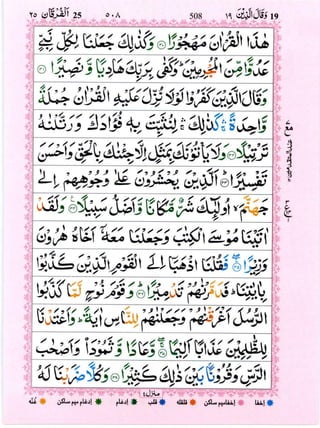 ١٩ وَقَالَ الَّذِيْنَ 19 508 ٥٠٨ 25 اَلْفُرْقَان ٢٥
هٰذَا الْقُرْاٰنَ مَهْجُوْرًا ﴿٣٠﴾ وَكَذٰلِكَ جَعَلْنَا لِكُلِّ نَبِيٍّ
عَدُوًّا مِّنَ الْمُجْرِمِيْنَ ؕ وَكَفٰى بِرَبِّكَ هَادِيًا وَّ نَصِيْرًا ﴿٣١﴾
وَقَالَ الَّذِيْنَ كَفَرُوْا لَوْلَا نُزِّلَ عَلَيْهِ الْقُرْاٰنُ جُمْلَةً
وَّاحِدَةً ۛۚ كَذٰلِكَ ۛۚ لِنُثَبِّتَ بِهٖ فُؤَادَكَ وَرَتَّلْنٰهُ
تَرْتِيْلًا ﴿٣٢﴾ وَلَا يَاْتُوْنَكَ بِمَثَلٍ اِلَّا جِئْنٰكَ بِالْحَقِّ وَاَحْسَنَ
تَفْسِيْرًا ﴿٣٣﴾ اَلَّذِيْنَ يُحْشَرُوْنَ عَلٰى وُجُوْهِهِمْ اِلٰى
جَهَنَّمَ ۙ اُولٰٓئِكَ شَرٌّ مَّكَانًا وَّاَضَلُّ سَبِيْلًا ﴿٣٤﴾ وَلَقَدْ
اٰتَيْنَا مُوْسَى الْكِتٰبَ وَجَعَلْنَا مَعَهٗۤ اَخَاهُ هٰرُوْنَ
وَزِيْرًا ﴿٣٥﴾ فَقُلْنَا اذْهَبَاۤ اِلَى الْقَوْمِ الَّذِيْنَ كَذَّبُوْا
بِاٰيٰتِنَا ؕ فَدَمَّرْنٰهُمْ تَدْمِيْرًا ﴿٣٦﴾ وَقَوْمَ نُوْحٍ لَّمَّا كَذَّبُوا
الرُّسُلَ اَغْرَقْنٰهُمْ وَجَعَلْنٰهُمْ لِلنَّاسِ اٰيَةً ؕ وَاَعْتَدْنَا
لِلظّٰلِمِيْنَ عَذَابًا اَلِيْمًا ﴿٣٧﴾ وَّعَادًا وَّثَمُوْدَا۟ وَاَصْحٰبَ
الرَّسِّ وَقُرُوْنًۢا بَيْنَ ذٰلِكَ كَثِيْرًا ﴿٣٨﴾ وَكُلًّا ضَرَبْنَا لَهُ
منزل ٤
اخفا اخفامیم ساکن قلقله قلب ادغام ادغام میم ساکن غنّه